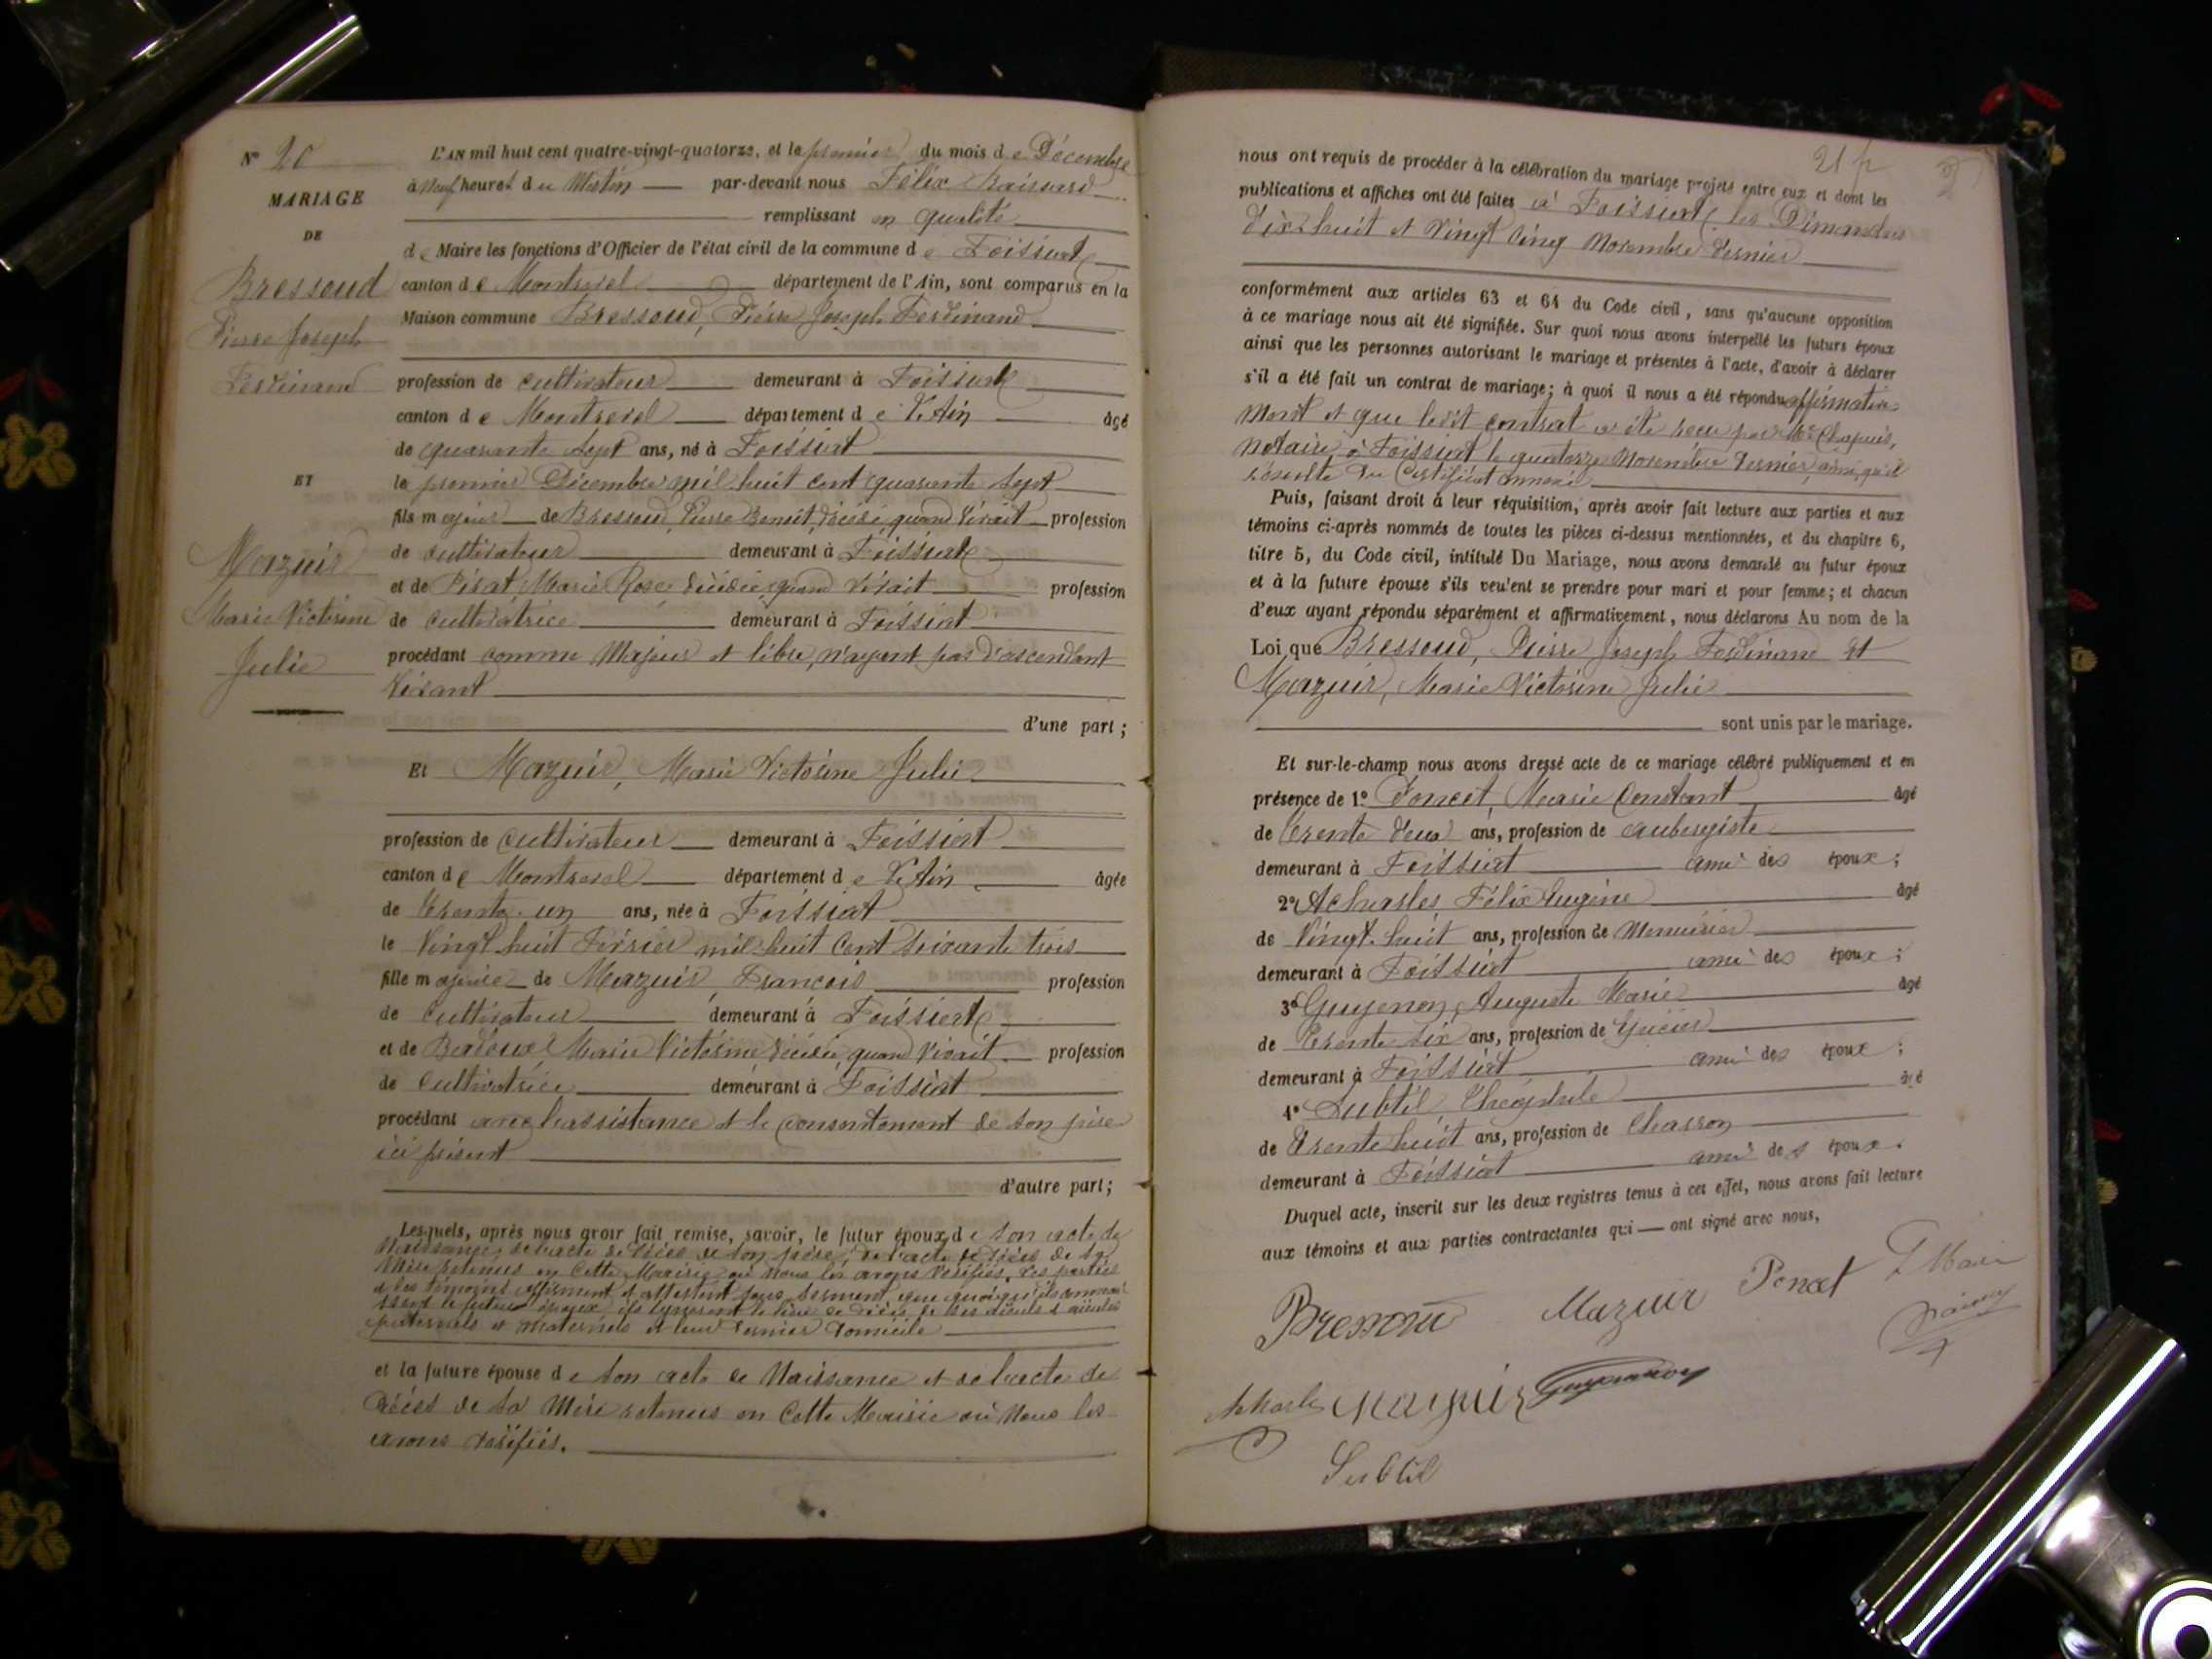 N° 20
MARIAGE
DE
Bressoud
Pierre Joseph
Ferdinand
ET
Mazuir
Marie Victorine
Julie
L'AN mil huit cent quatre-vingt-quatorze, et le premier du mois de Décembre
à neuf heures du Matin par-devant nous Félix
remplissant en qualité
de Maire les fonctions d'Officier de l'état civil de la commune de Foissiat
canton de Montrevel département de l'Ain, sont comparus en la
Maison commune Bressoud, Pierre Joseph Ferdinand
profession de cultivateur demeurant à Foissiat
canton de Montrevel département de L'Ain âgé
de quarante sept ans, né à Foissiat
le premier Décembre mil huit cent quarante sept
fils majeur de Bressoud, Pierre Benoit, décédé, quand vivait profession
de cultivateur demeurant à Foissiat
et de Pisat Marie Rose décédée, quand vivait profession
de cultivatrice demeurant à Foissiat
procédant comme Majeur et libre, n'ayant pas d'ascendant
vivant
d'une part ;
Et Mazuir, Marie Victorine Julie
profession de cultivateur demeurant à Foissiat
canton de Montrevel département de L'Ain âgée
de trente un ans, née à Foissiat
le vingt huit Février mil huit cent soixante trois
fille majeure de Mazuir, François profession
de cultivateur demeurant à Foissiat
et de Marie Victorine décédée, quand vivait profession
de cultivatrice demeurant à Foissiat
procédant avec l'assistance et le consentement de son père
ici présent
d'autre part ;
Lesquels, après nous avoir fait remise, savoir, le futur époux de son acte de
Naissance, de l'acte de décès de son père, de l'acte de décès de sa
Mère retenus en cette Mairie où nous les avons vérifiés. Les parties
et les témoins affirment et attestent sous serment que quoiqu'ils connais-
sent le futur époux, ils ignorent le lieu de décès de ses aïeuls et aïeules
paternels et maternels et leur dernier domicile
et la future épouse de son acte de Naissance et de l'acte de
décès de sa Mère retenus en cette Mairie où nous les
avons vérifiés.
21
nous ont requis de procéder à la célébration du mariage projeté entre eux et dont les
publications et affiches ont été faites à Foissiat, les Dimanches
dix-huit et vingt cinq Novembre dernier
conformément aux articles 63 et 64 du Code civil, sans qu'aucune opposition
à ce mariage nous ait été signifiée. Sur quoi nous avons interpellé les futurs époux
ainsi que les personnes autorisant le mariage et présentes à l'acte, d'avoir à déclarer
s'il a été fait un contrat de mariage ; à quoi il nous a été répondu affirmative-
ment et que ledit contrat a été reçu par Me Chapuis,
notaire à Foissiat le quatorze Novembre dernier, ainsi qu'il
résulte du certificat annexé
Puis, faisant droit à leur réquisition, après avoir fait lecture aux parties et aux
témoins ci-après nommés de toutes les pièces ci-dessus mentionnées, et du chapitre 6,
titre 5, du Code civil, intitulé Du Mariage, nous avons demandé au futur époux
et à la future épouse s'ils veulent se prendre pour mari et pour femme ; et chacun
d'eux ayant répondu séparément et affirmativement, nous déclarons Au nom de la
Loi que Bressoud, Pierre Joseph Ferdinand et
Mazuir, Marie Victorine Julie
sont unis par le mariage.
Et sur-le-champ nous avons dressé acte de ce mariage célébré publiquement et en
présence de 1° Poncet, Marie Constant âgé
de trente deux ans, profession de aubergiste
demeurant à Foissiat ami des époux ;
2° Acharles Félix Eugène âgé
de vingt-huit ans, profession de Menuisier
demeurant à Foissiat ami des époux ;
3° Guyenon, Auguste Marie âgé
de trente six ans, profession de Epicier
demeurant à Foissiat ami des époux ;
4° Subtil, Théophile âgé
de trente huit ans, profession de Charron
demeurant à Foissiat ami des époux.
Duquel acte, inscrit sur les deux registres tenus à cet effet, nous avons fait lecture
aux témoins et aux parties contractantes qui ont signé avec nous,
Bressoud Mazuir Poncet Le Maire
Acharles Mazuir Guyenon
Subtil